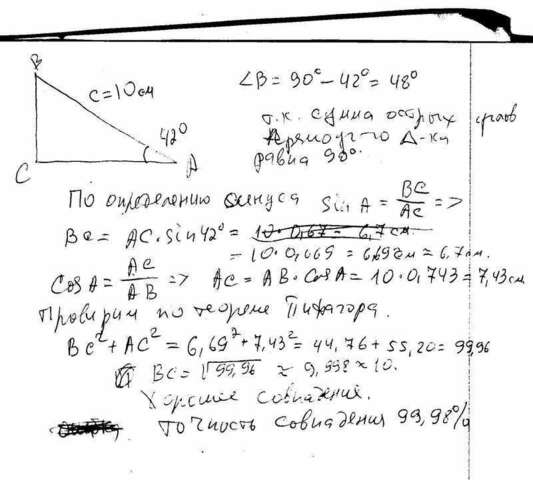 B
c=10см
42°
C
A
∠B = 90° − 42° = 48°
т.к. сумма острых углов
прямоуг-го Δ-ка
равна 90°.
По определению синуса sin A = BC/AC =>
BC = AC · sin 42° = 10 · 0,67 = 6,7 см.
= 10 · 0,669 = 6,69 см ≈ 6,7 см.
Cos A = AC/AB => AC = AB · Cos A = 10 · 0,743 = 7,43 см
Проверим по теореме Пифагора.
BC² + AC² = 6,69² + 7,43² = 44,76 + 55,20 = 99,96
BC = √99,96 ≈ 9,998 ≈ 10.
Хорошее совпадение.
Точность совпадения 99,98%